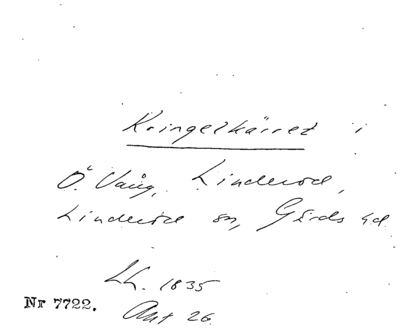 Kringelkärret i
Ö. Vång, Linderöd,
Linderöds sn, Gärds hd
Lh. 1835
Akt 26
Nr 7722.